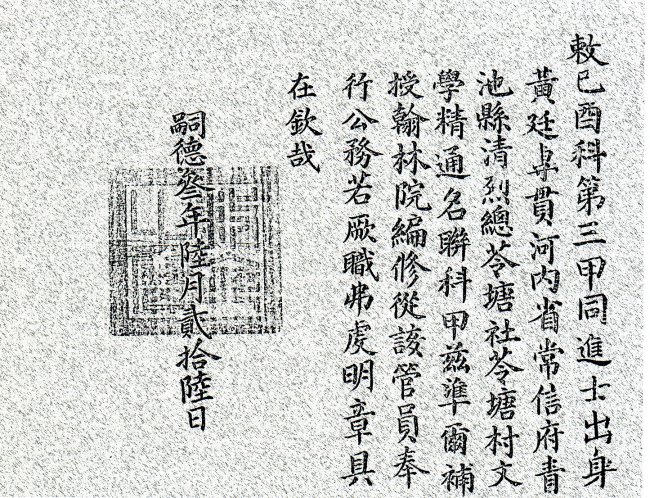 敕己酉科第三甲同進士出身
黃廷專貫河内省常信府青
池縣清烈總苓塘社苓塘村文
學精通名聯科甲兹準爾補
授翰林院編修從該管員奉
行公務若厥職弗虔明章具
在欽哉
嗣德叁年陸月貳拾陸日